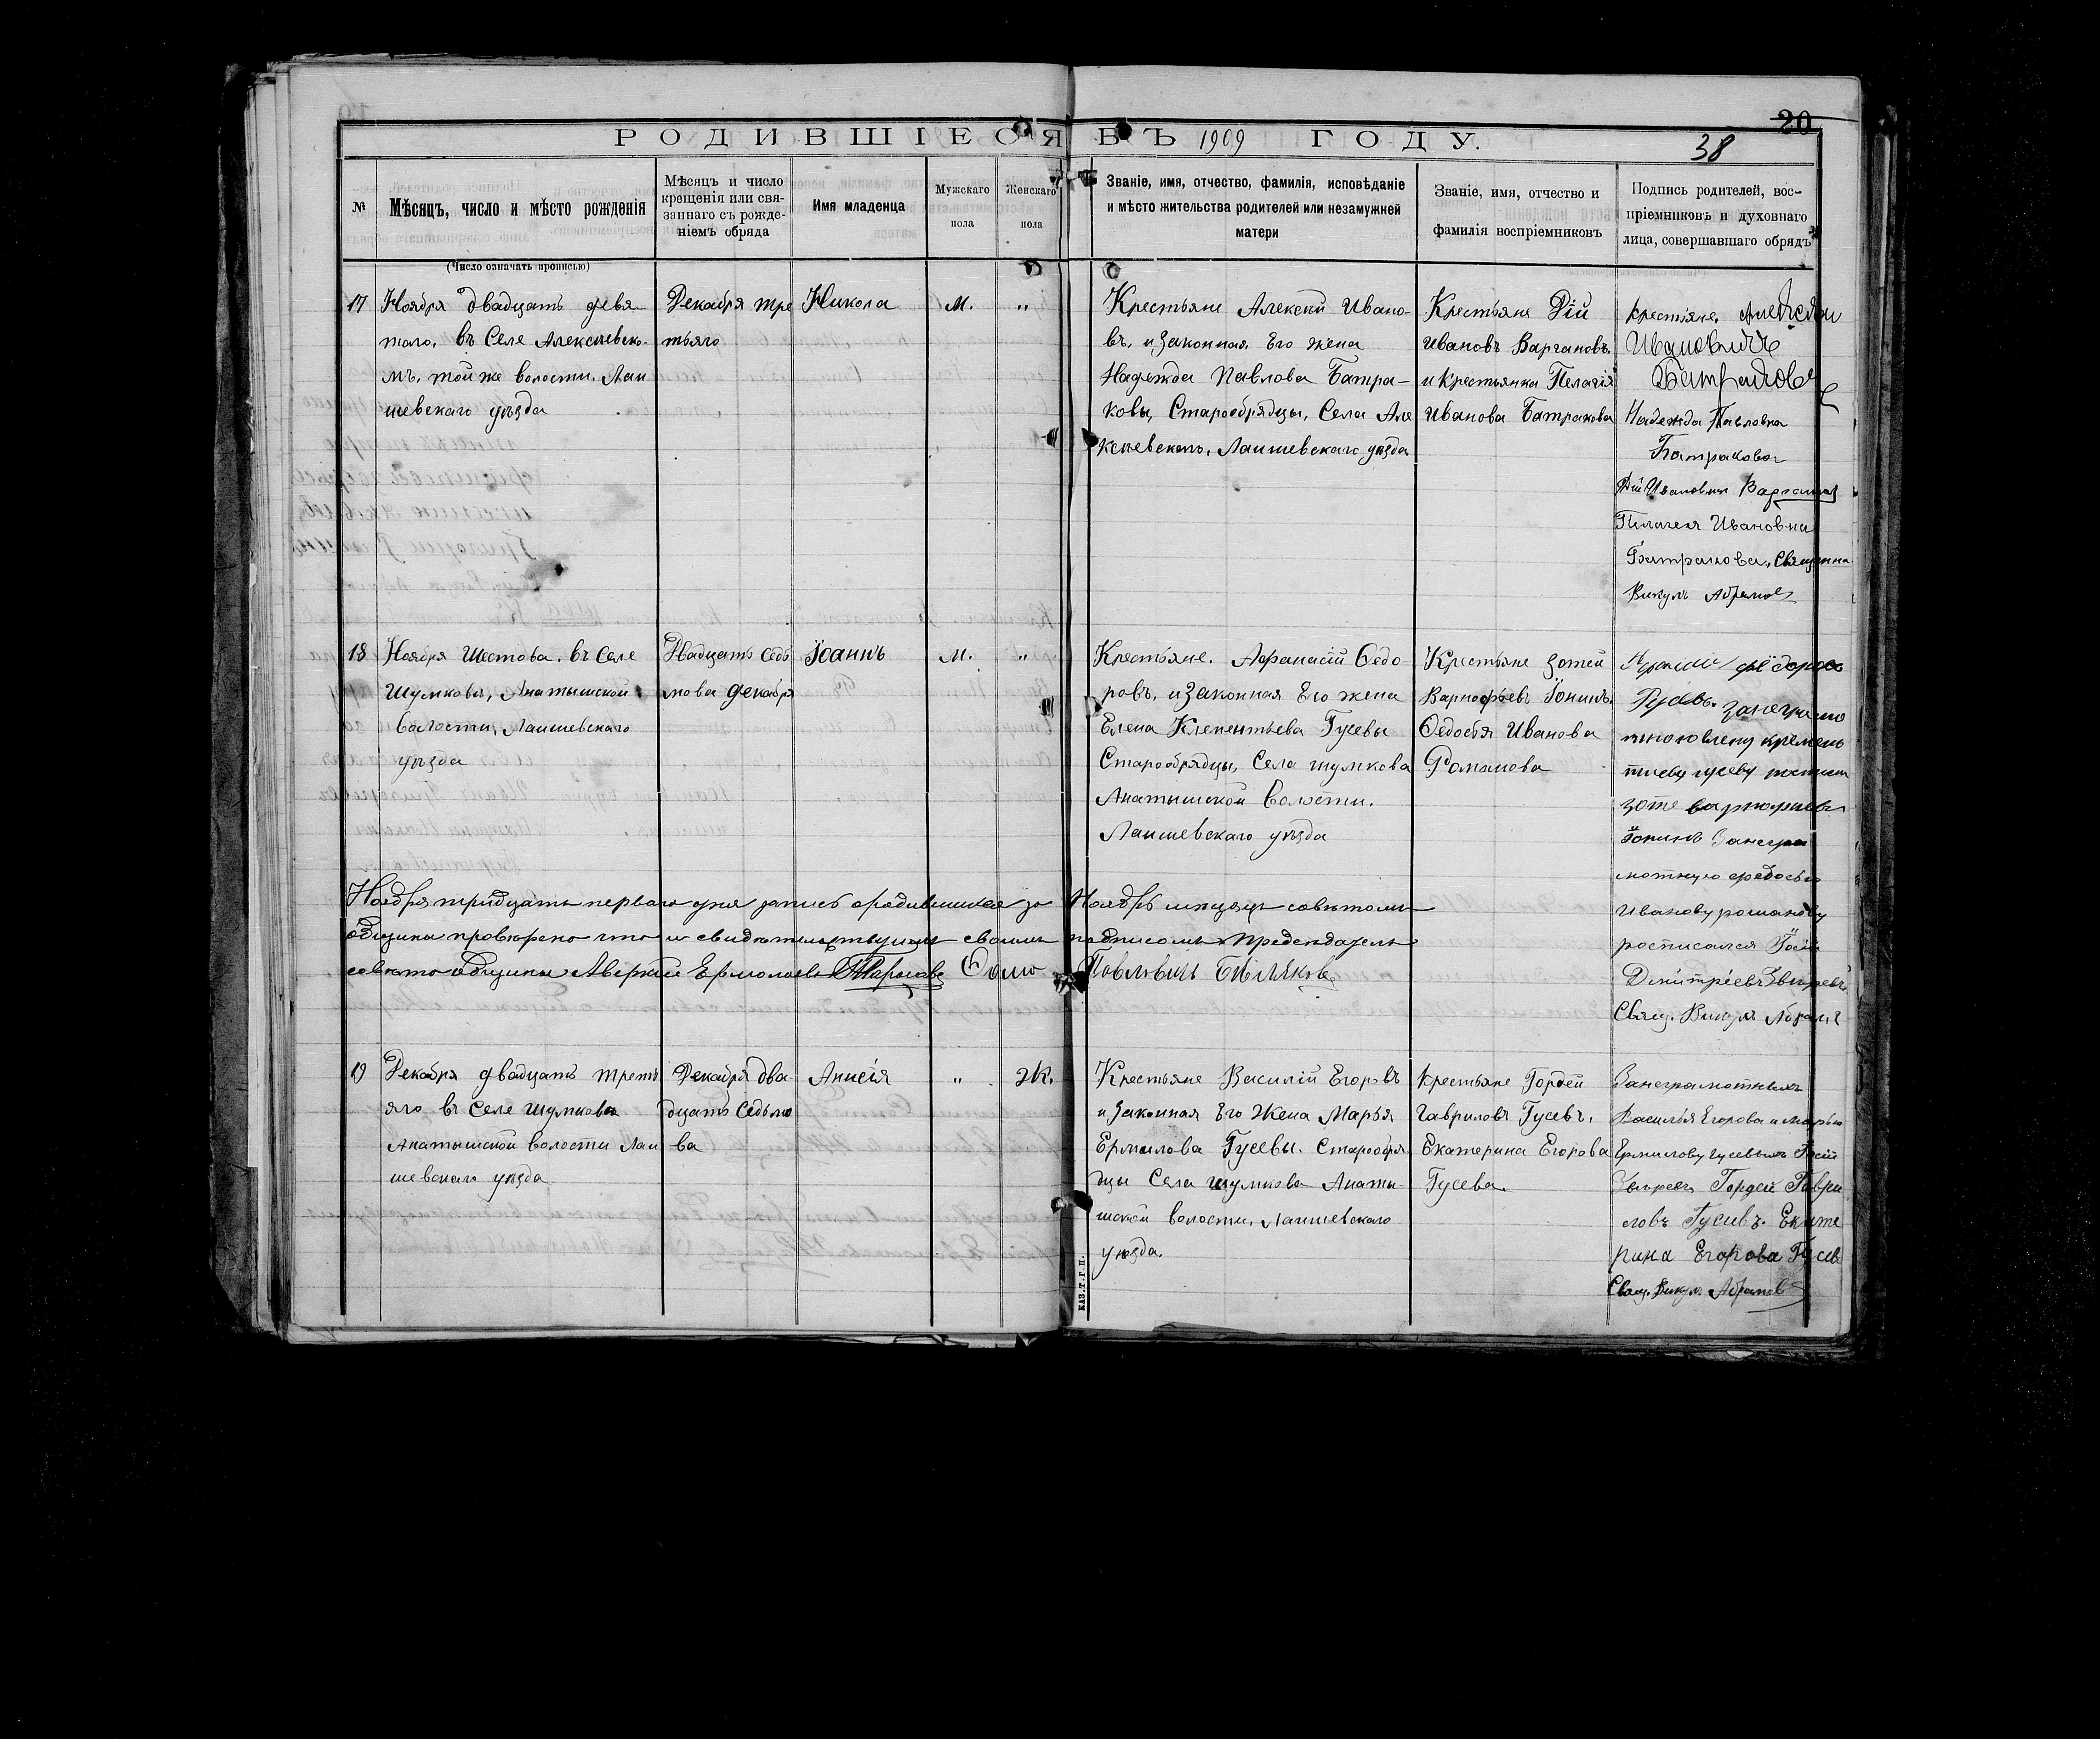 20
РОДИВШІЕСЯ ВЪ 1909 ГОДУ.
38
№
Мѣсяцъ, число и мѣсто рожденія
(Число означать прописью)
Мѣсяцъ и число
крещенія или свя-
заннаго съ рожде-
ніемъ обряда
Имя младенца
Мужскаго
пола
Женскаго
пола
Званіе, имя, отчество, фамилія, исповѣданіе
и мѣсто жительства родителей или незамужней
матери
Званіе, имя, отчество и
фамилія воспріемниковъ
Подпись родителей, вос-
пріемниковъ и духовнаго
лица, совершавшаго обрядъ
17
Ноября двадцать девя
таго, въ Селе Алексеевско-
мъ, той же волости, Лаи
шевскаго уѣзда
Декабря тре
тьяго
Никола
м.
"
Крестьяне Алексей Ивано-
въ, и законная Его жена
Надежда Павлова Батра-
ковы, Старообрядцы, Села Але
ксеевскаго, Лаишевскаго уѣзда
Крестьяне Дій
Ивановъ Вардановъ
и Крестьянка Пелагія
Иванова Батракова
крестьяне, Алексей
Ивановичъ
Батраковъ
Надежда Павловна
Батракова
Дій Ивановъ
Пелагея Ивановна
Батракова, Священна
Викулъ Абрамов
18
Ноября Шестова. въ Селе
Шумкове, Анатышской
волости, Лаишевскаго
уѣзда
Двадцать седь
мова декабря
Їоаннъ
м.
"
Крестьяне. Афанасій Ѳедо
ровъ, и законная Его жена
Елена Клементьева Гусевы
Старообрядцы, Села шумкова
Анатышской волости.
Лаишевскаго уѣзда
Крестьяне Зотей
Варфофеевъ Їонинъ,
Ѳедосья Иванова
Романова
фёдоровъ
Гусевъ. занеграмо
гусеву
Їонинъ Занегра
мотную федосью
Иванову романову
росписался
Дмитріевъ Звѣревъ
Свящ. Викулъ Абрам
Ноября тридцать перваго дня запись о родившихся за Ноябрь месяцъ советомъ
общины проверено что и свидетельствуемъ своимъ подписомъ Председатель
совета общины Аверкий Ермолаевъ Тарасовъ Фома Павловичъ Беляковъ
19
Декабря двадцать треть
яго въ Селе Шумкове
Анатышской волости Лаи
шевскаго уѣзда
Декабря два
дцать седьмо
ва
Аннсія
"
Ж.
Крестьяне Василій Егоровъ
и Законная Его Жена Марья
Ермилова Гусевы. Старообря
дцы Села шумкова Анаты-
шской волости, Лаишевскаго
уѣзда.
крестьяне Гордей
Гавриловъ Гусевъ,
Екатерина Егорова
Гусева.
Занеграмотныхъ
Василья Егорова и Марью
Ермилову Гусевыхъ
Звѣревъ Гордей Гаври
ловъ Гусевъ. Екате
рина Егорова Гусев
Свящ. Викул. Абрамов
КАЗ.Т.Г.П.